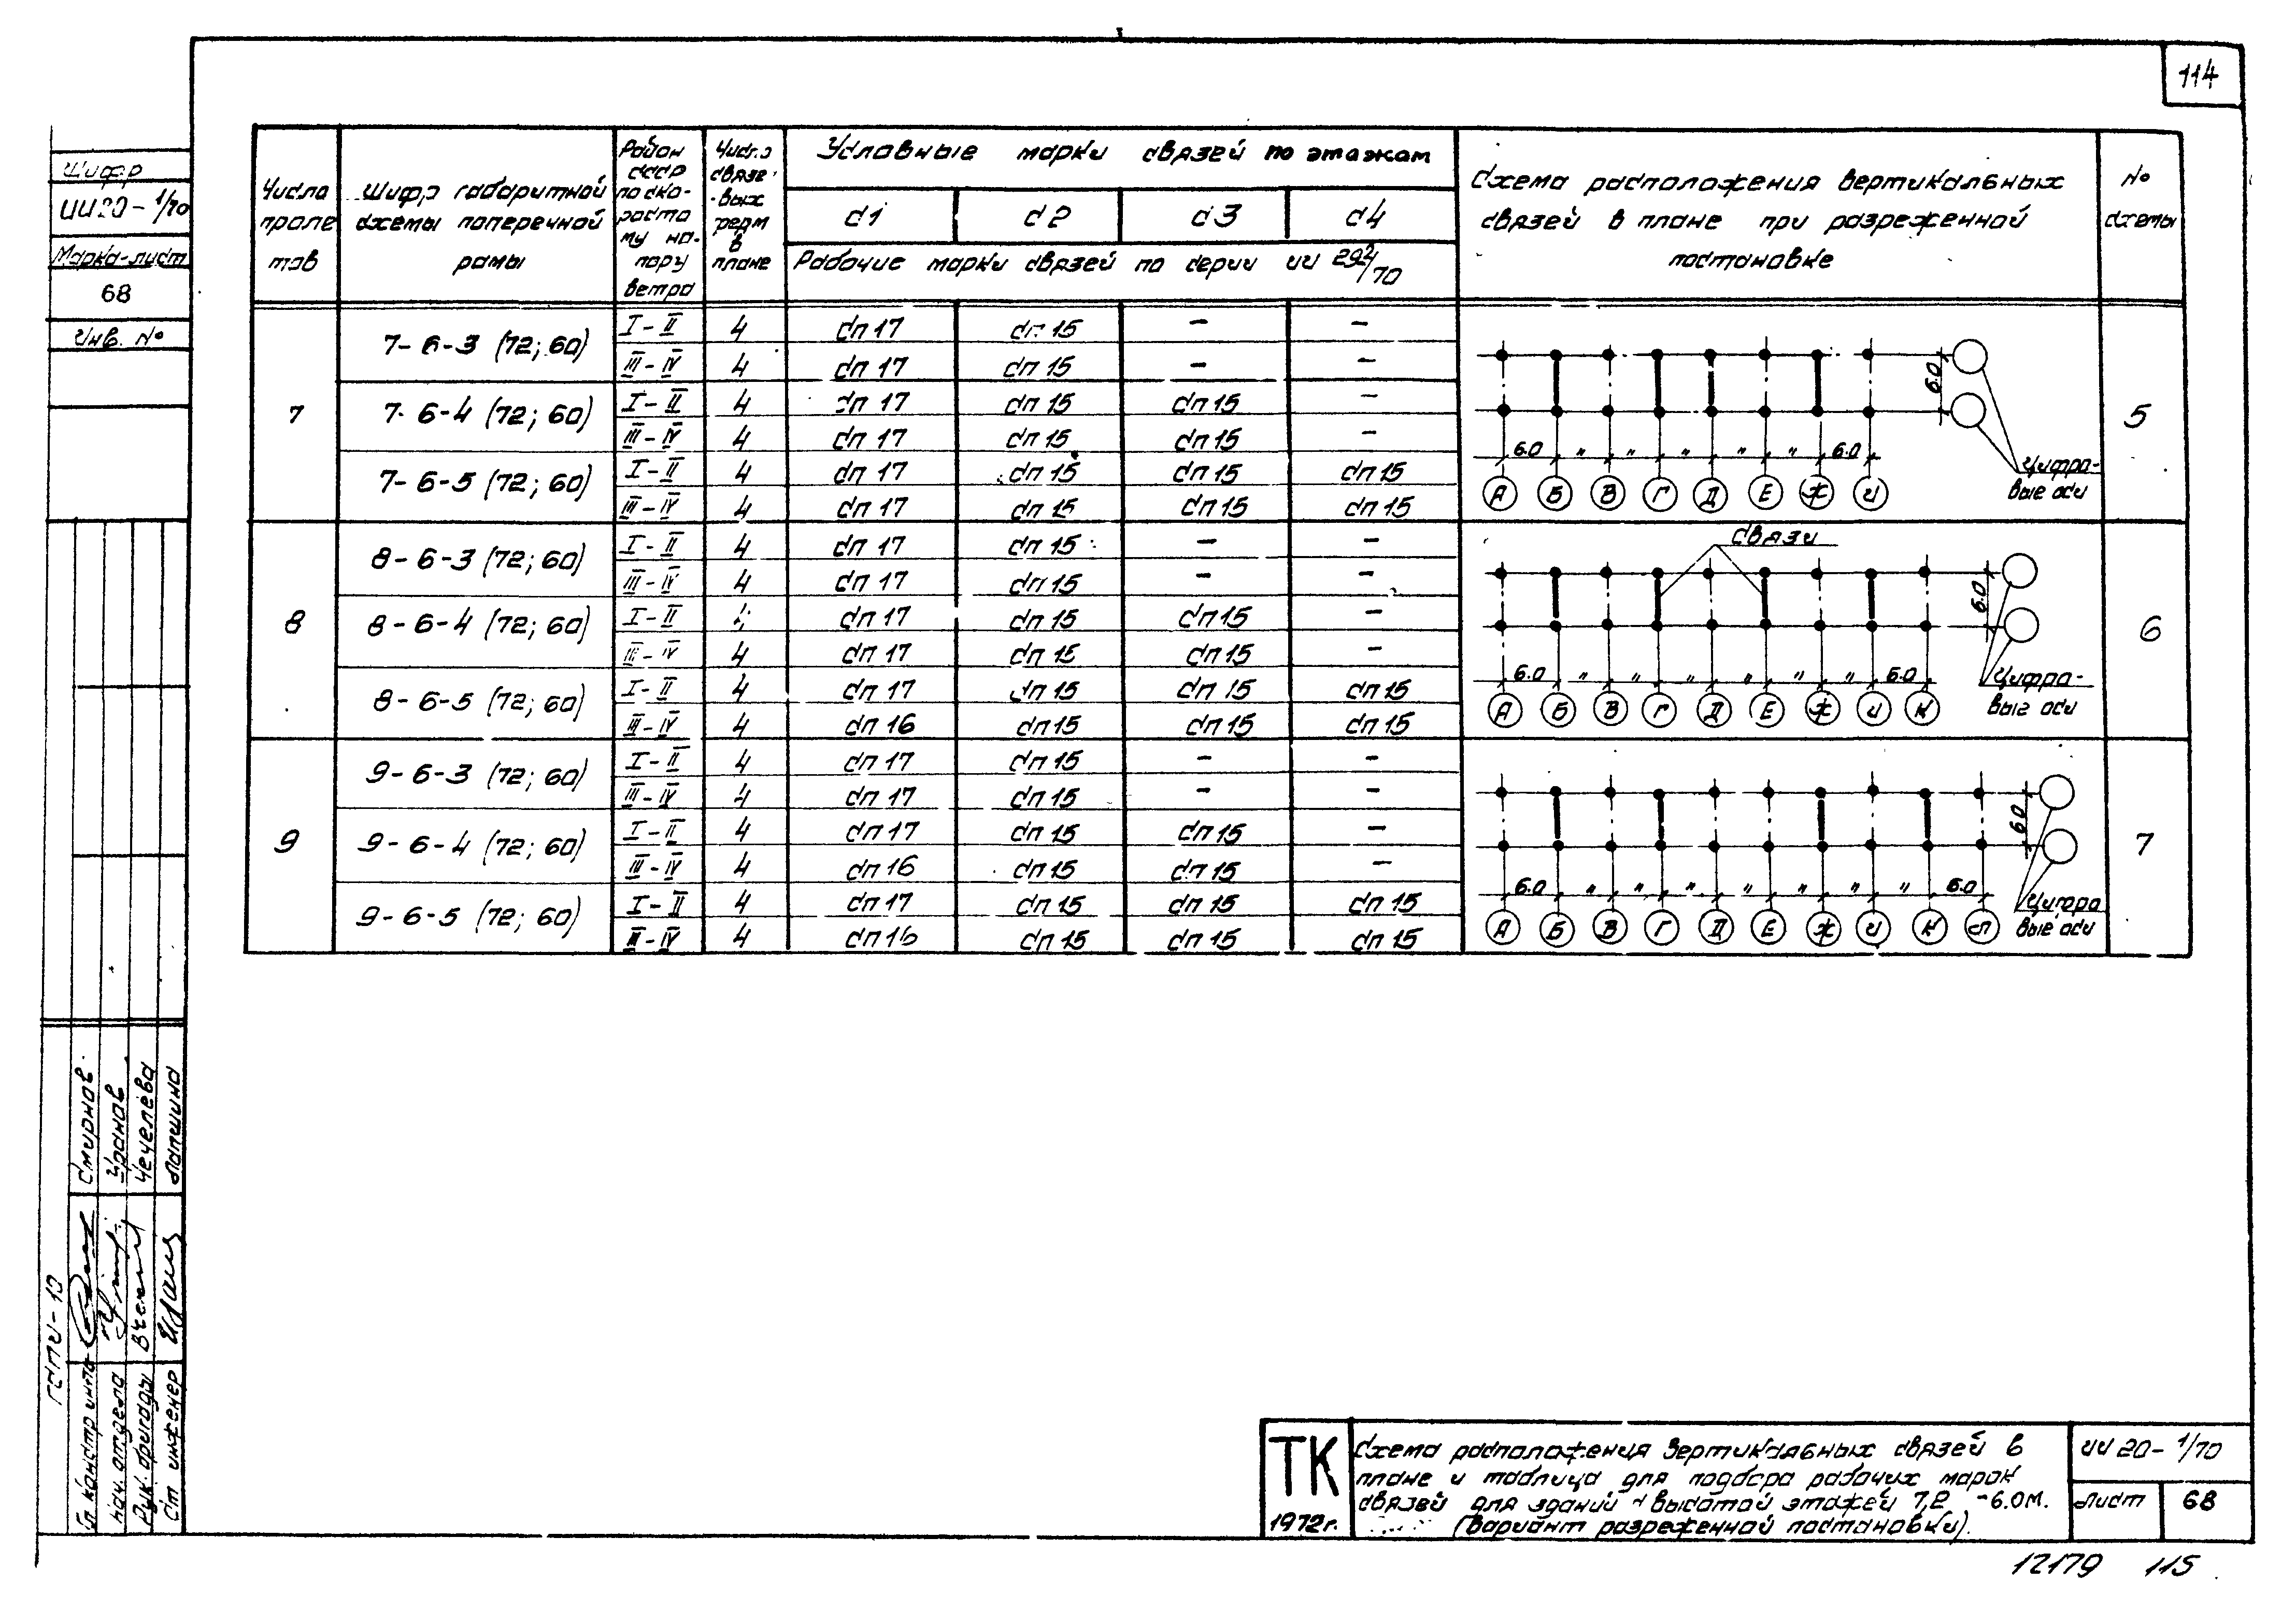 114
Шифр
ИИ20-1/70
Марка-лист
68
Инв. №
Число пролетов
Шифр габаритной схемы поперечной рамы
Район СССР по скоростному напору ветра
Число связевых ферм в плане
Условные марки связей по этажам
С1 С2 С3 С4
Рабочие марки связей по серии ИИ 29²/70
Схема расположения вертикальных связей в плане при разреженной постановке
№ схемы
7
7-6-3 (72; 60) I-II 4 СП 17 СП 15 - -
III-IV 4 СП 17 СП 15 - -
7-6-4 (72; 60) I-II 4 СП 17 СП 15 СП 15 -
III-IV 4 СП 17 СП 15 СП 15 -
7-6-5 (72; 60) I-II 4 СП 17 СП 15 СП 15 СП 15
III-IV 4 СП 17 СП 15 СП 15 СП 15
6.0
6.0 " " " " " 6.0
А Б В Г Д Е Ж И
Цифро-
вые оси
5
8
8-6-3 (72; 60) I-II 4 СП 17 СП 15 - -
III-IV 4 СП 17 СП 15 - -
8-6-4 (72; 60) I-II 4 СП 17 СП 15 СП 15 -
III-IV 4 СП 17 СП 15 СП 15 -
8-6-5 (72; 60) I-II 4 СП 17 СП 15 СП 15 СП 15
III-IV 4 СП 16 СП 15 СП 15 СП 15
Связи
6.0
6.0 " " " " " " 6.0
А Б В Г Д Е Ж И К
Цифро-
вые оси
6
9
9-6-3 (72; 60) I-II 4 СП 17 СП 15 - -
III-IV 4 СП 17 СП 15 - -
9-6-4 (72; 60) I-II 4 СП 17 СП 15 СП 15 -
III-IV 4 СП 16 СП 15 СП 15 -
9-6-5 (72; 60) I-II 4 СП 17 СП 15 СП 15 СП 15
III-IV 4 СП 16 СП 15 СП 15 СП 15
6.0
6.0 " " " " " " " 6.0
А Б В Г Д Е Ж И К Л
Цифро
вые оси
7
ГСПИ-10
Гл. констр. ин-та Смирнов
Нач. отдела
Рук. бригады Чечелева
Ст. инженер Лапшина
ТК
1972г.
Схема расположения вертикальных связей в
плане и таблица для подбора рабочих марок
связей для зданий с высотой этажей 7,2 -6.0м.
(Вариант разреженной постановки).
ИИ 20-1/70
Лист 68
12179 115